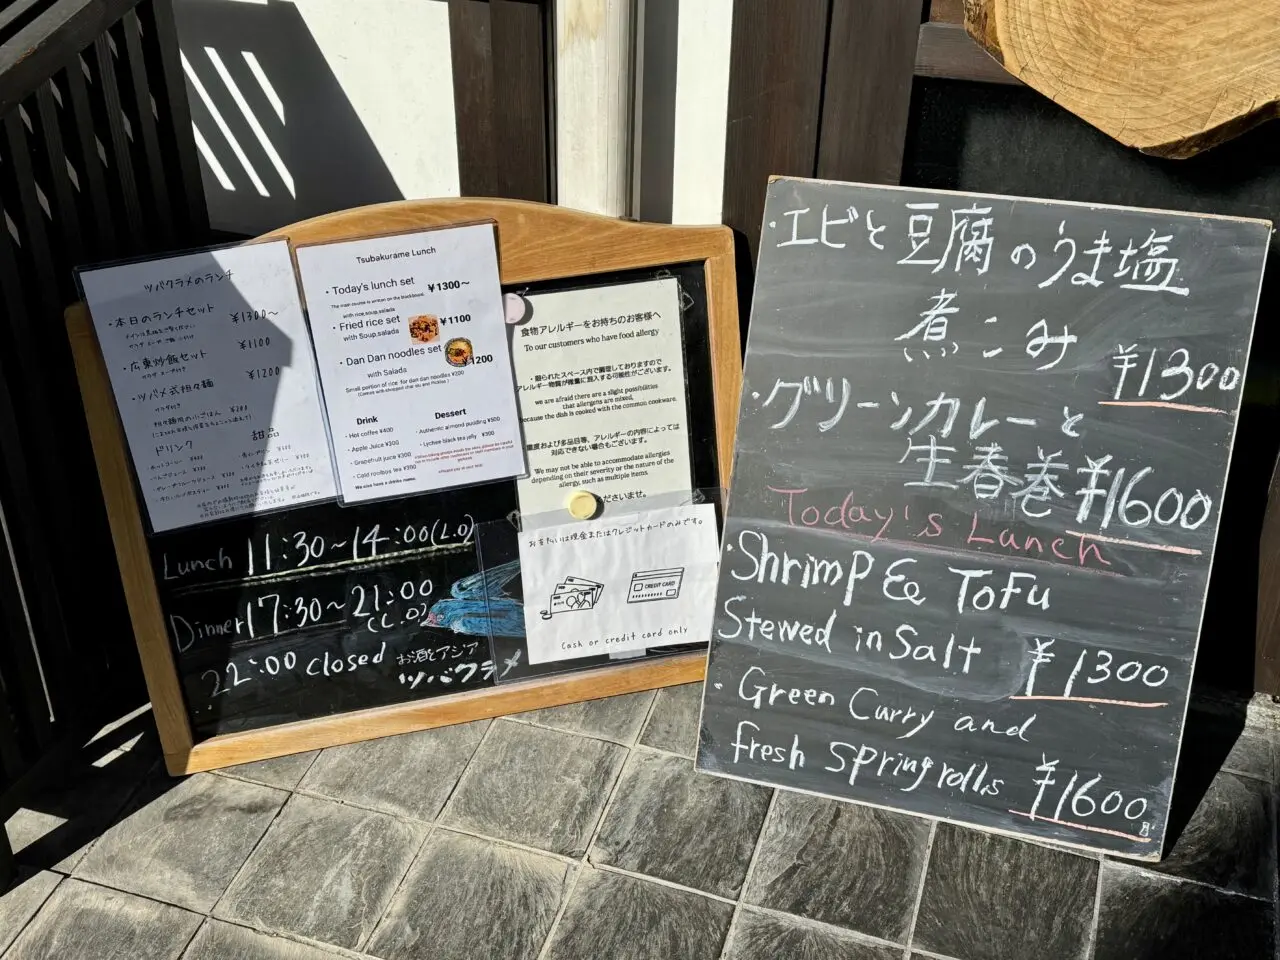 ツバクラメのランチ
・本日のランチセット
¥1300〜
・広東炒飯セット
¥1100
・ツバメ式担々麺
¥1200
ドリンク
甜品
Tsubakurame Lunch
・Today's lunch set
¥1300〜
The main course is written on the blackboard.
with rice,soup,salada
・Fried rice set
¥1100
with Soup,salada
・Dan Dan noodles set
¥1200
with Salada
Small portion of rice for dan dan noodles ¥200
Drink
・Hot coffee ¥400
・Apple Juice ¥300
・Grapefruit juice ¥300
・Cold rooibos tea ¥300
We also have a drinks menu.
Dessert
・Authentic almond pudding ¥500
・Lychee black tea jelly ¥300
食物アレルギーをお持ちのお客様へ
To our customers who have food allergy
・限られたスペース内で調理しておりますので
アレルギー物質が微量に混入する可能性がございます。
we are afraid there are a slight possibilities
that allergens are mixed,
because the dish is cooked with the common cookware.
重度および多品目等、アレルギーの内容によっては
対応できない場合もございます。
We may not be able to accommodate allergies
depending on their severity or the nature of the
allergy, such as multiple items.
くださいませ。
お支払いは現金またはクレジットカードのみです。
CREDIT CARD
Cash or credit card only
Lunch 11:30〜14:00(L.O)
Dinner 17:30〜21:00
(L.O)
22:00 closed
お酒とアジア
ツバクラメ
・エビと豆腐のうま塩
煮こみ
¥1300
・グリーンカレーと
生春巻 ¥1600
Today's Lunch
・Shrimp & ToFu
Stewed in Salt ¥1300
・Green Curry and
fresh spring rolls ¥1600